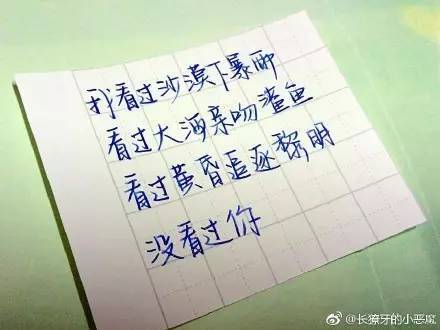 我看过沙漠下暴雨
看过大海亲吻鲨鱼
看过黄昏追逐黎明
没看过你
@长獠牙的小恶魔